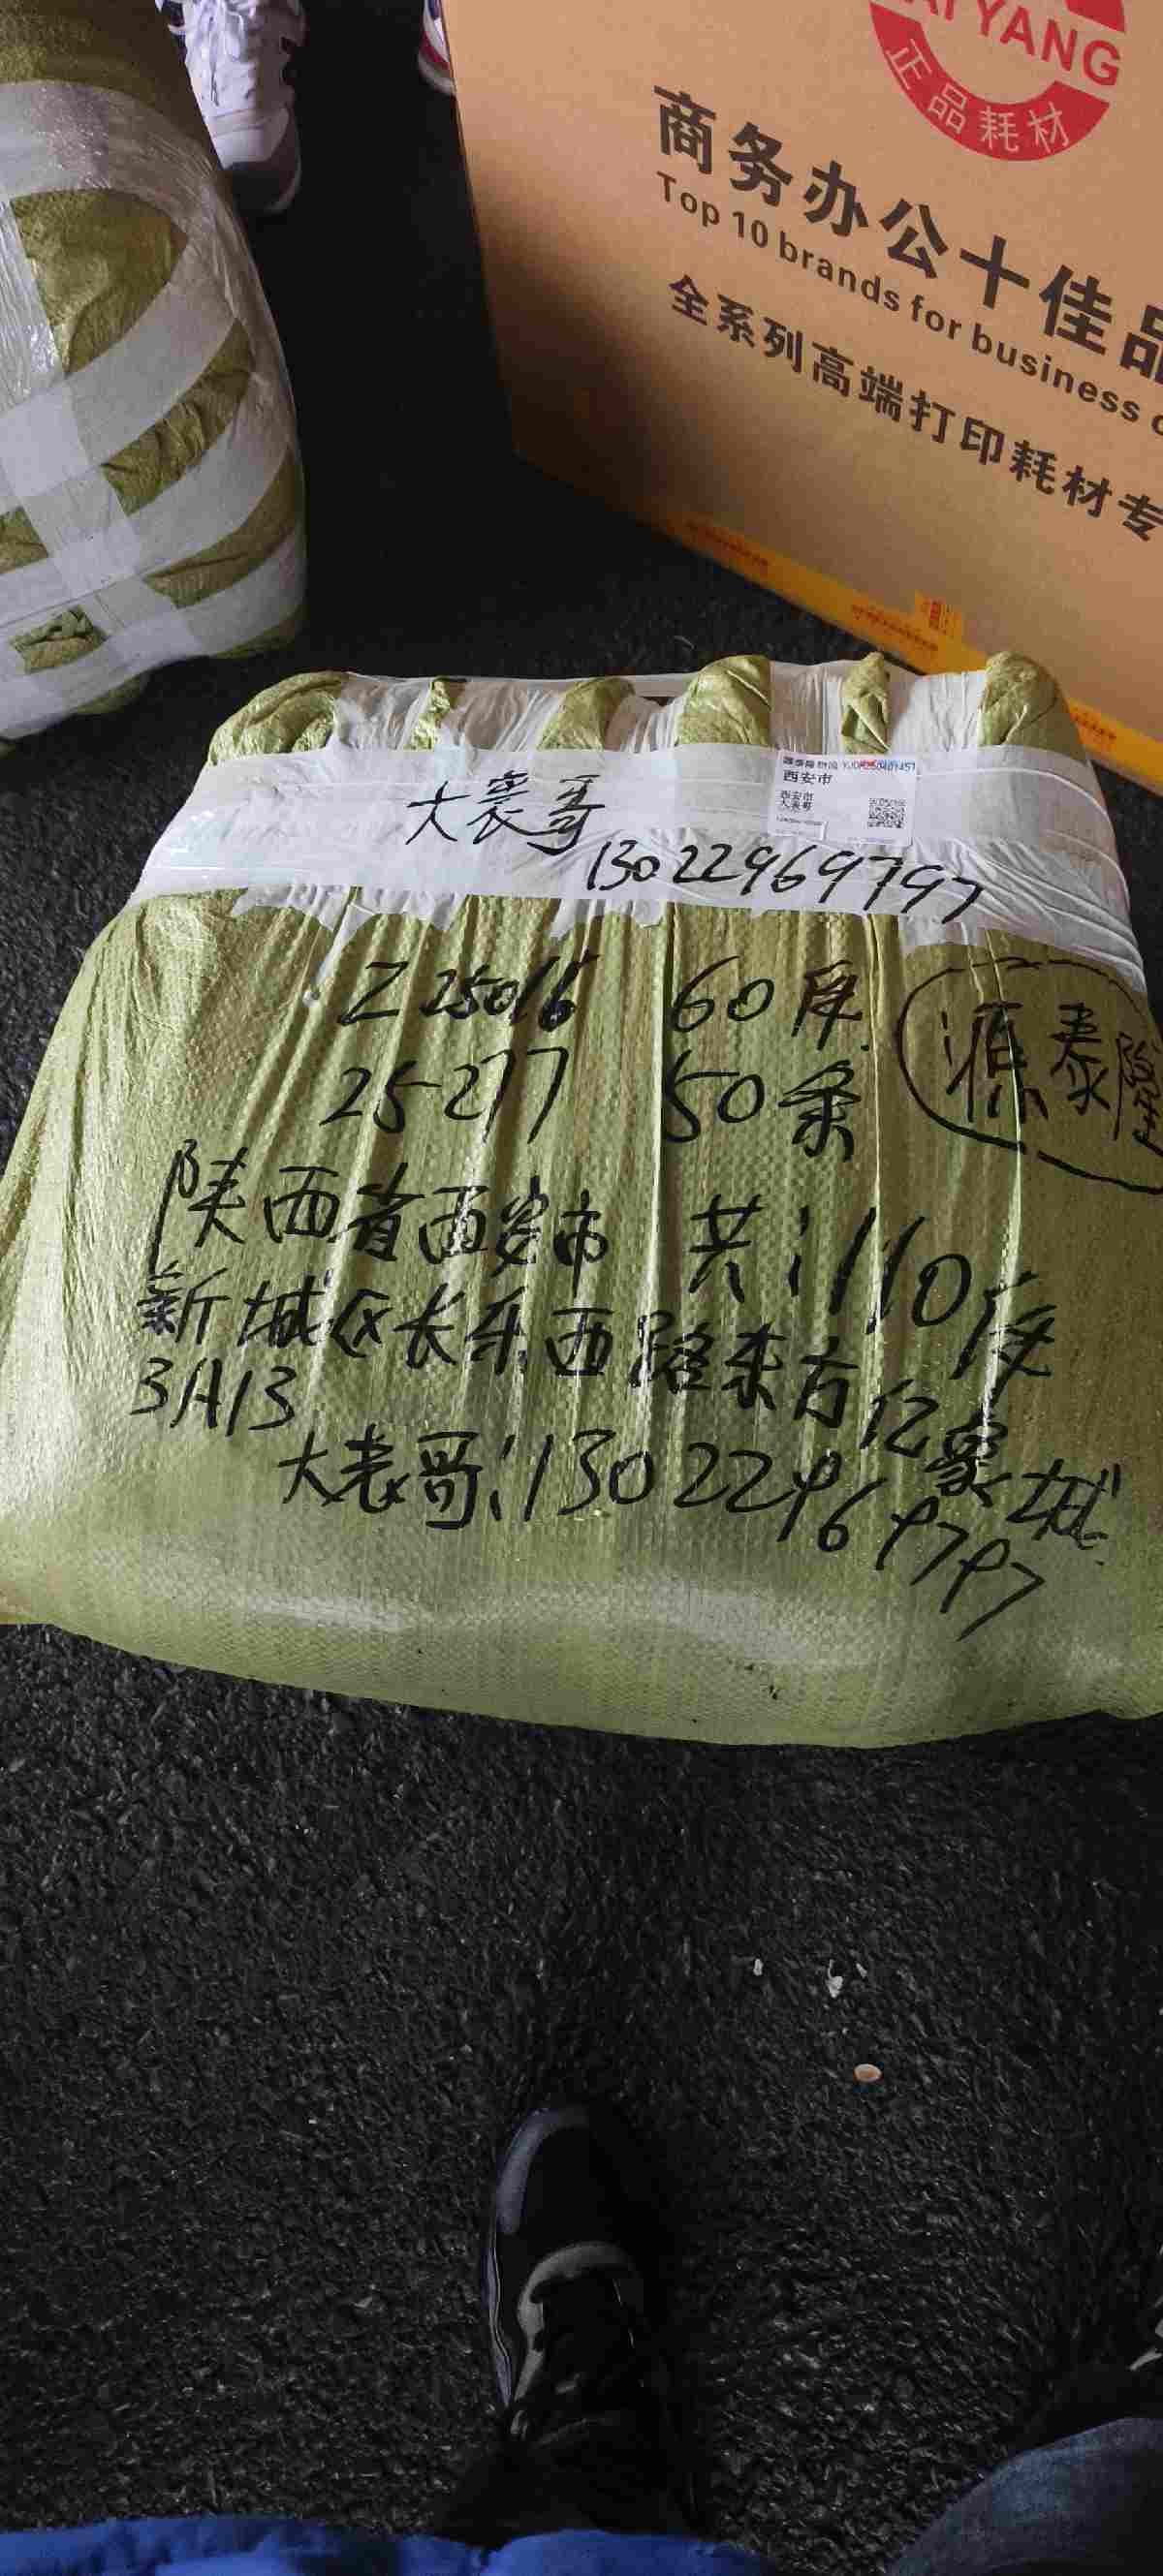 AIYANG
正品耗材
商务办公十佳品
Top 10 brands for business o
全系列高端打印耗材专
源泰隆物流
西安市
西安市
大表哥
大表哥
13022969797
Z25016 60条
25277 50条
源泰隆
共:110条
陕西省西安市
新城区长乐西路东方亿象城
3A13
大表哥:13022969797